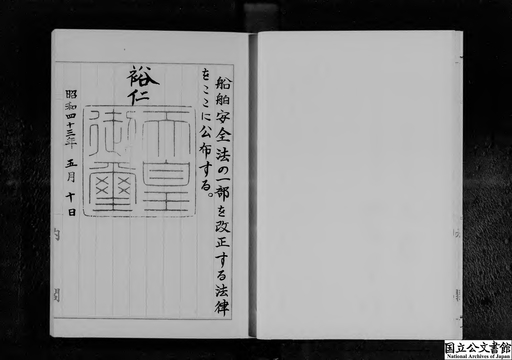 船舶安全法の一部を改正する法律
をここに公布する。
裕仁
天皇
御璽
昭和四十三年 五月 十日
国立公文書館
National Archives of Japan